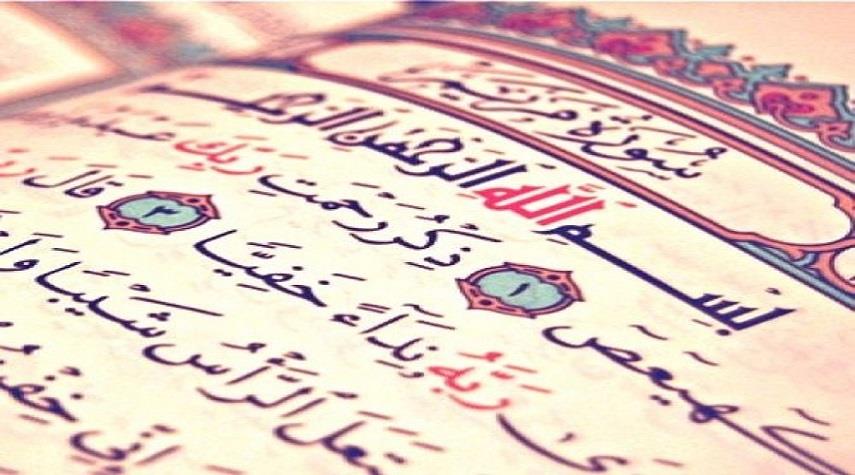 سُورَةُ مَرْيَمَ
بِسْمِ اللَّهِ الرَّحْمَٰنِ الرَّحِيمِ
كٓهيعٓصٓ ١ ذِكْرُ رَحْمَتِ رَبِّكَ عَبْدَهُ
رَبَّهُ نِدَآءً خَفِيًّا ٣ قَالَ
ٱلرَّأْسُ شَيْبًا وَ
إِنِّي خِفْتُ